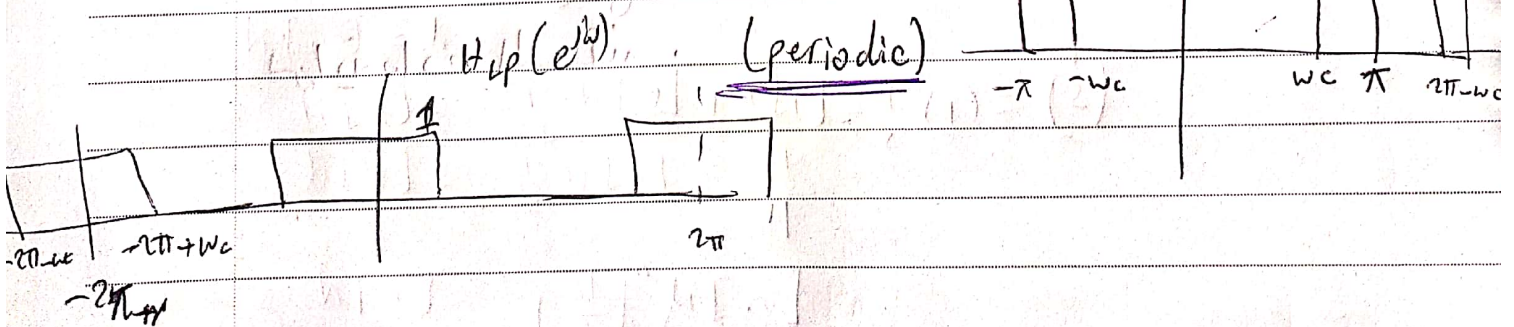 H_LP(e^jω) (periodic)
-π -ωc ωc π 2π-ωc
1
-2π-ωc -2π+ωc 2π
-2π